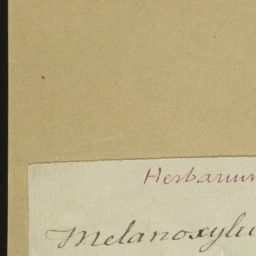 Herbarium
Melanoxylu